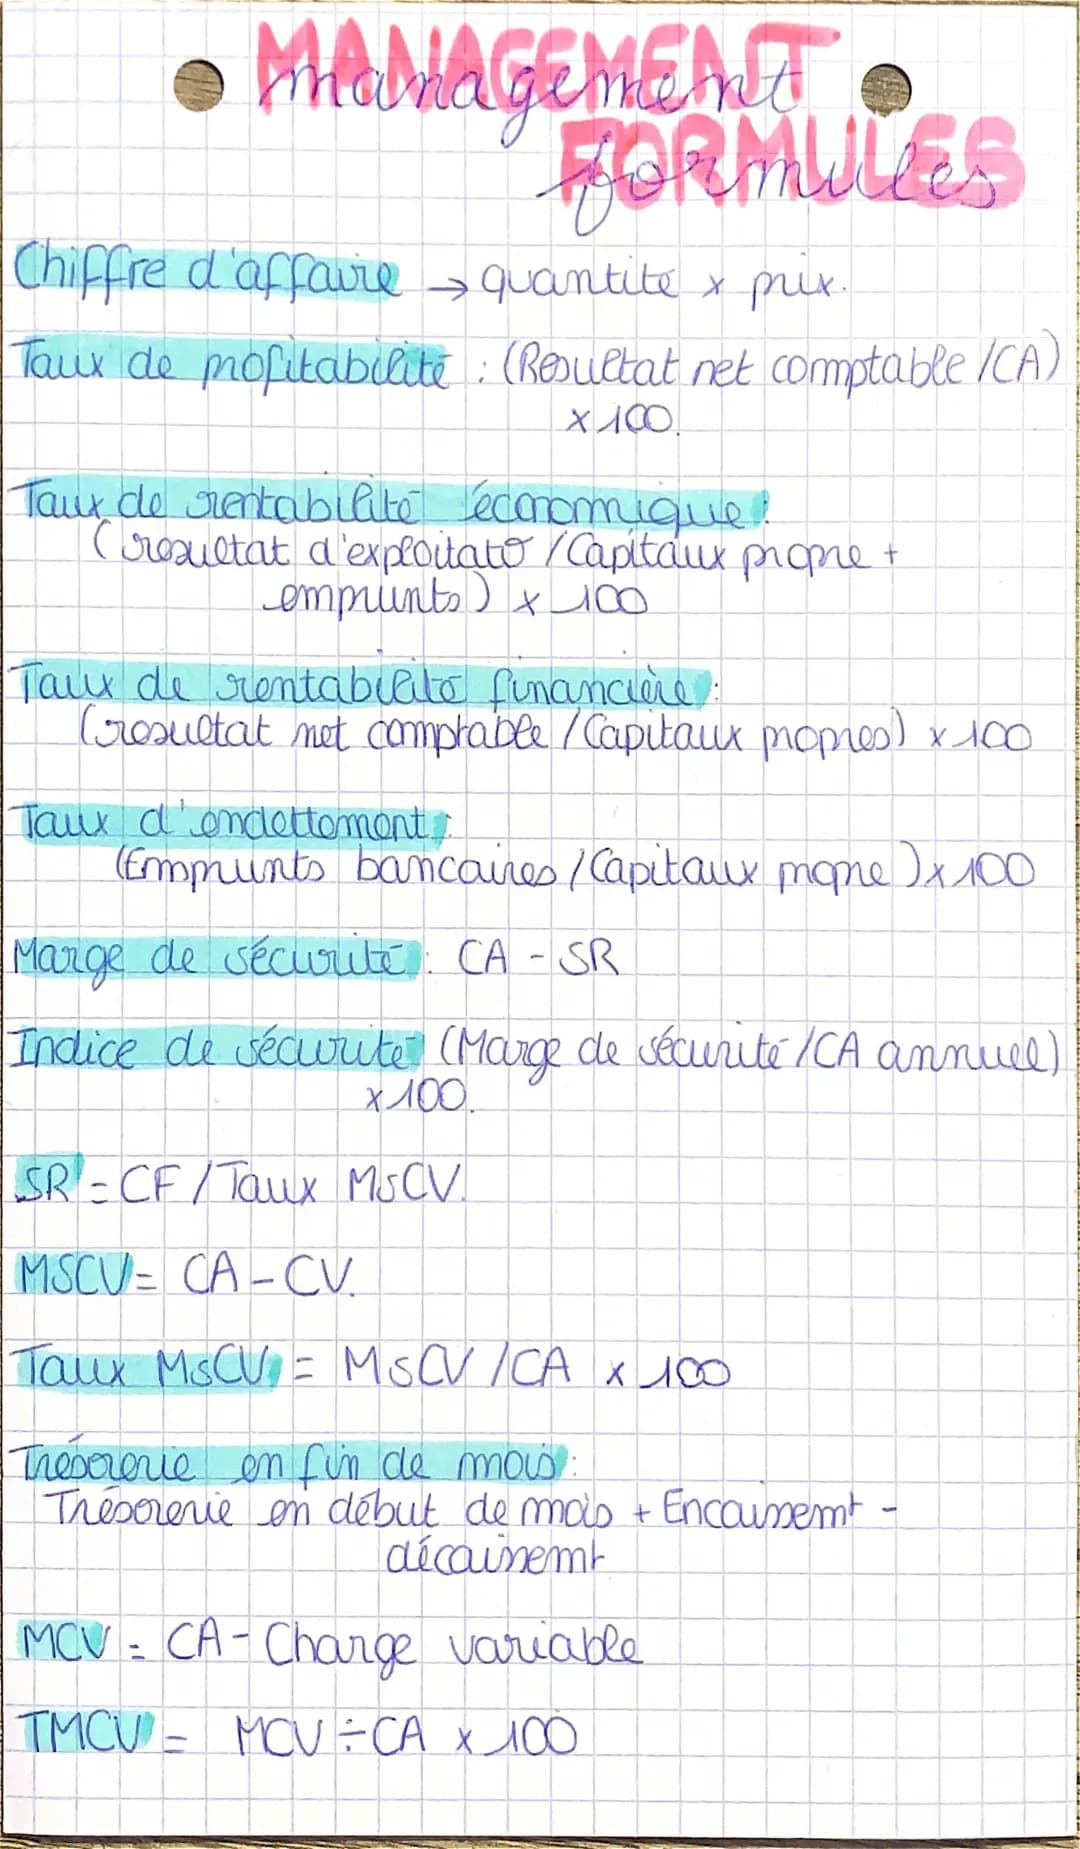 MANAGEMENT
management
FORMULES
formules
Chiffre d'affaire → quantité x prix.
Taux de profitabilité : (Resultat net comptable /CA)
x 100.
Taux de rentabilité économique :
(resultat d'exploitato /Capitaux propre +
emprunts) x 100
Taux de rentabilité financière :
(resultat net comptable /Capitaux propres) x 100
Taux d'endettement :
(Emprunts bancaires /Capitaux propre) x 100
Marge de sécurité : CA - SR
Indice de sécurité (Marge de sécurité /CA annuel)
x 100.
SR = CF / Taux MsCV.
MSCV = CA - CV.
Taux MsCV = MsCV /CA x 100
Trésorerie en fin de mois :
Trésorerie en début de mois + Encaissemt -
décaissemt
MCV = CA - Charge variable
TMCV = MCV ÷ CA x 100